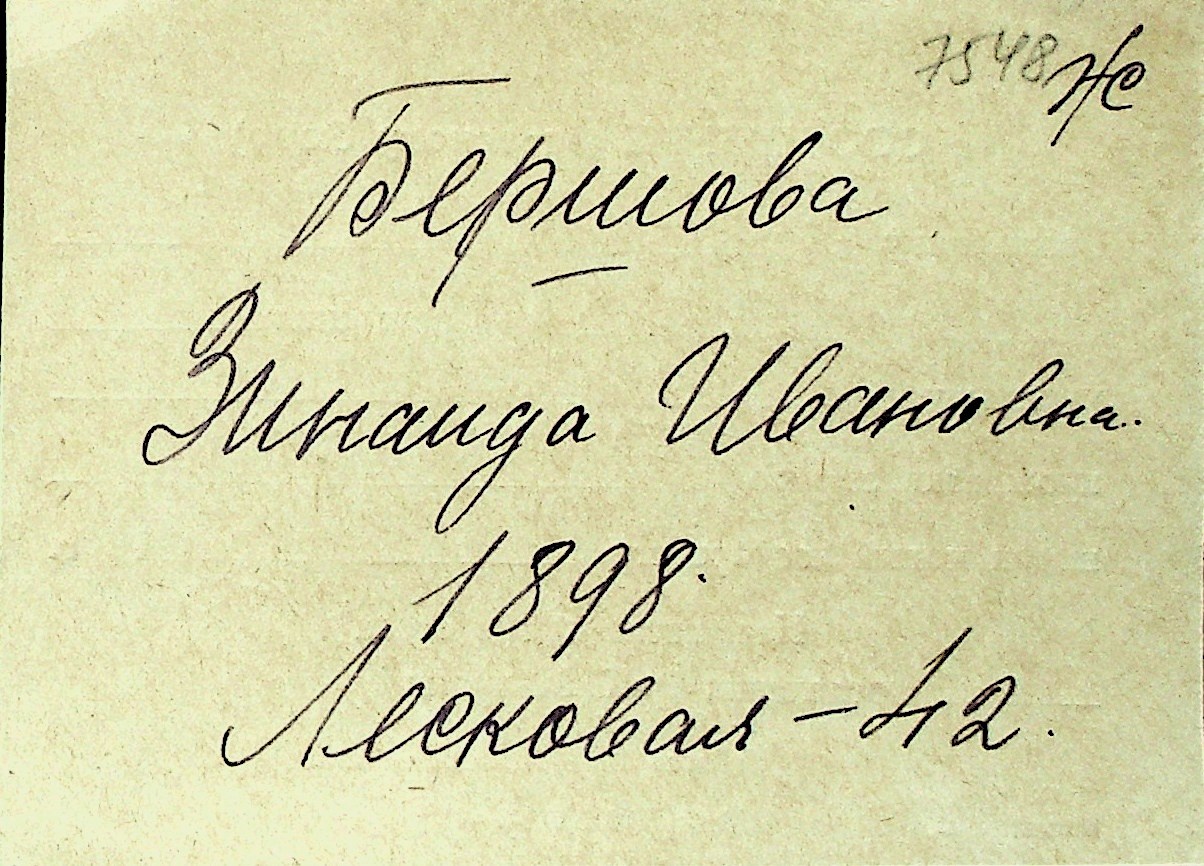 7548 Ж
Бершова
Зинаида Ивановна.
1898.
Лесковая - 42.